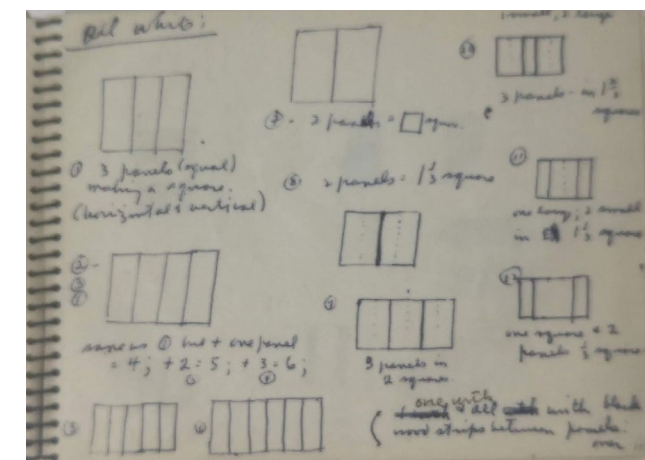 All white:
① 3 panels (equal)
making a square.
(horizontal & vertical)
②-
③
same as ① but + one panel
= 4; + 2 = 5; + 3 = 6;
⑤
⑥
⑦ - 2 panels = square.
⑧ 2 panels = 1 1/3 square
⑨
3 panels in
2 squares.
1 small, 2 large
⑩
3 panels - in
square
⑪
one long; 2 small
in 1 1/3 square
⑫
one square & 2
panels 1/3 square
one with
all with black
wood strips between panels.
over